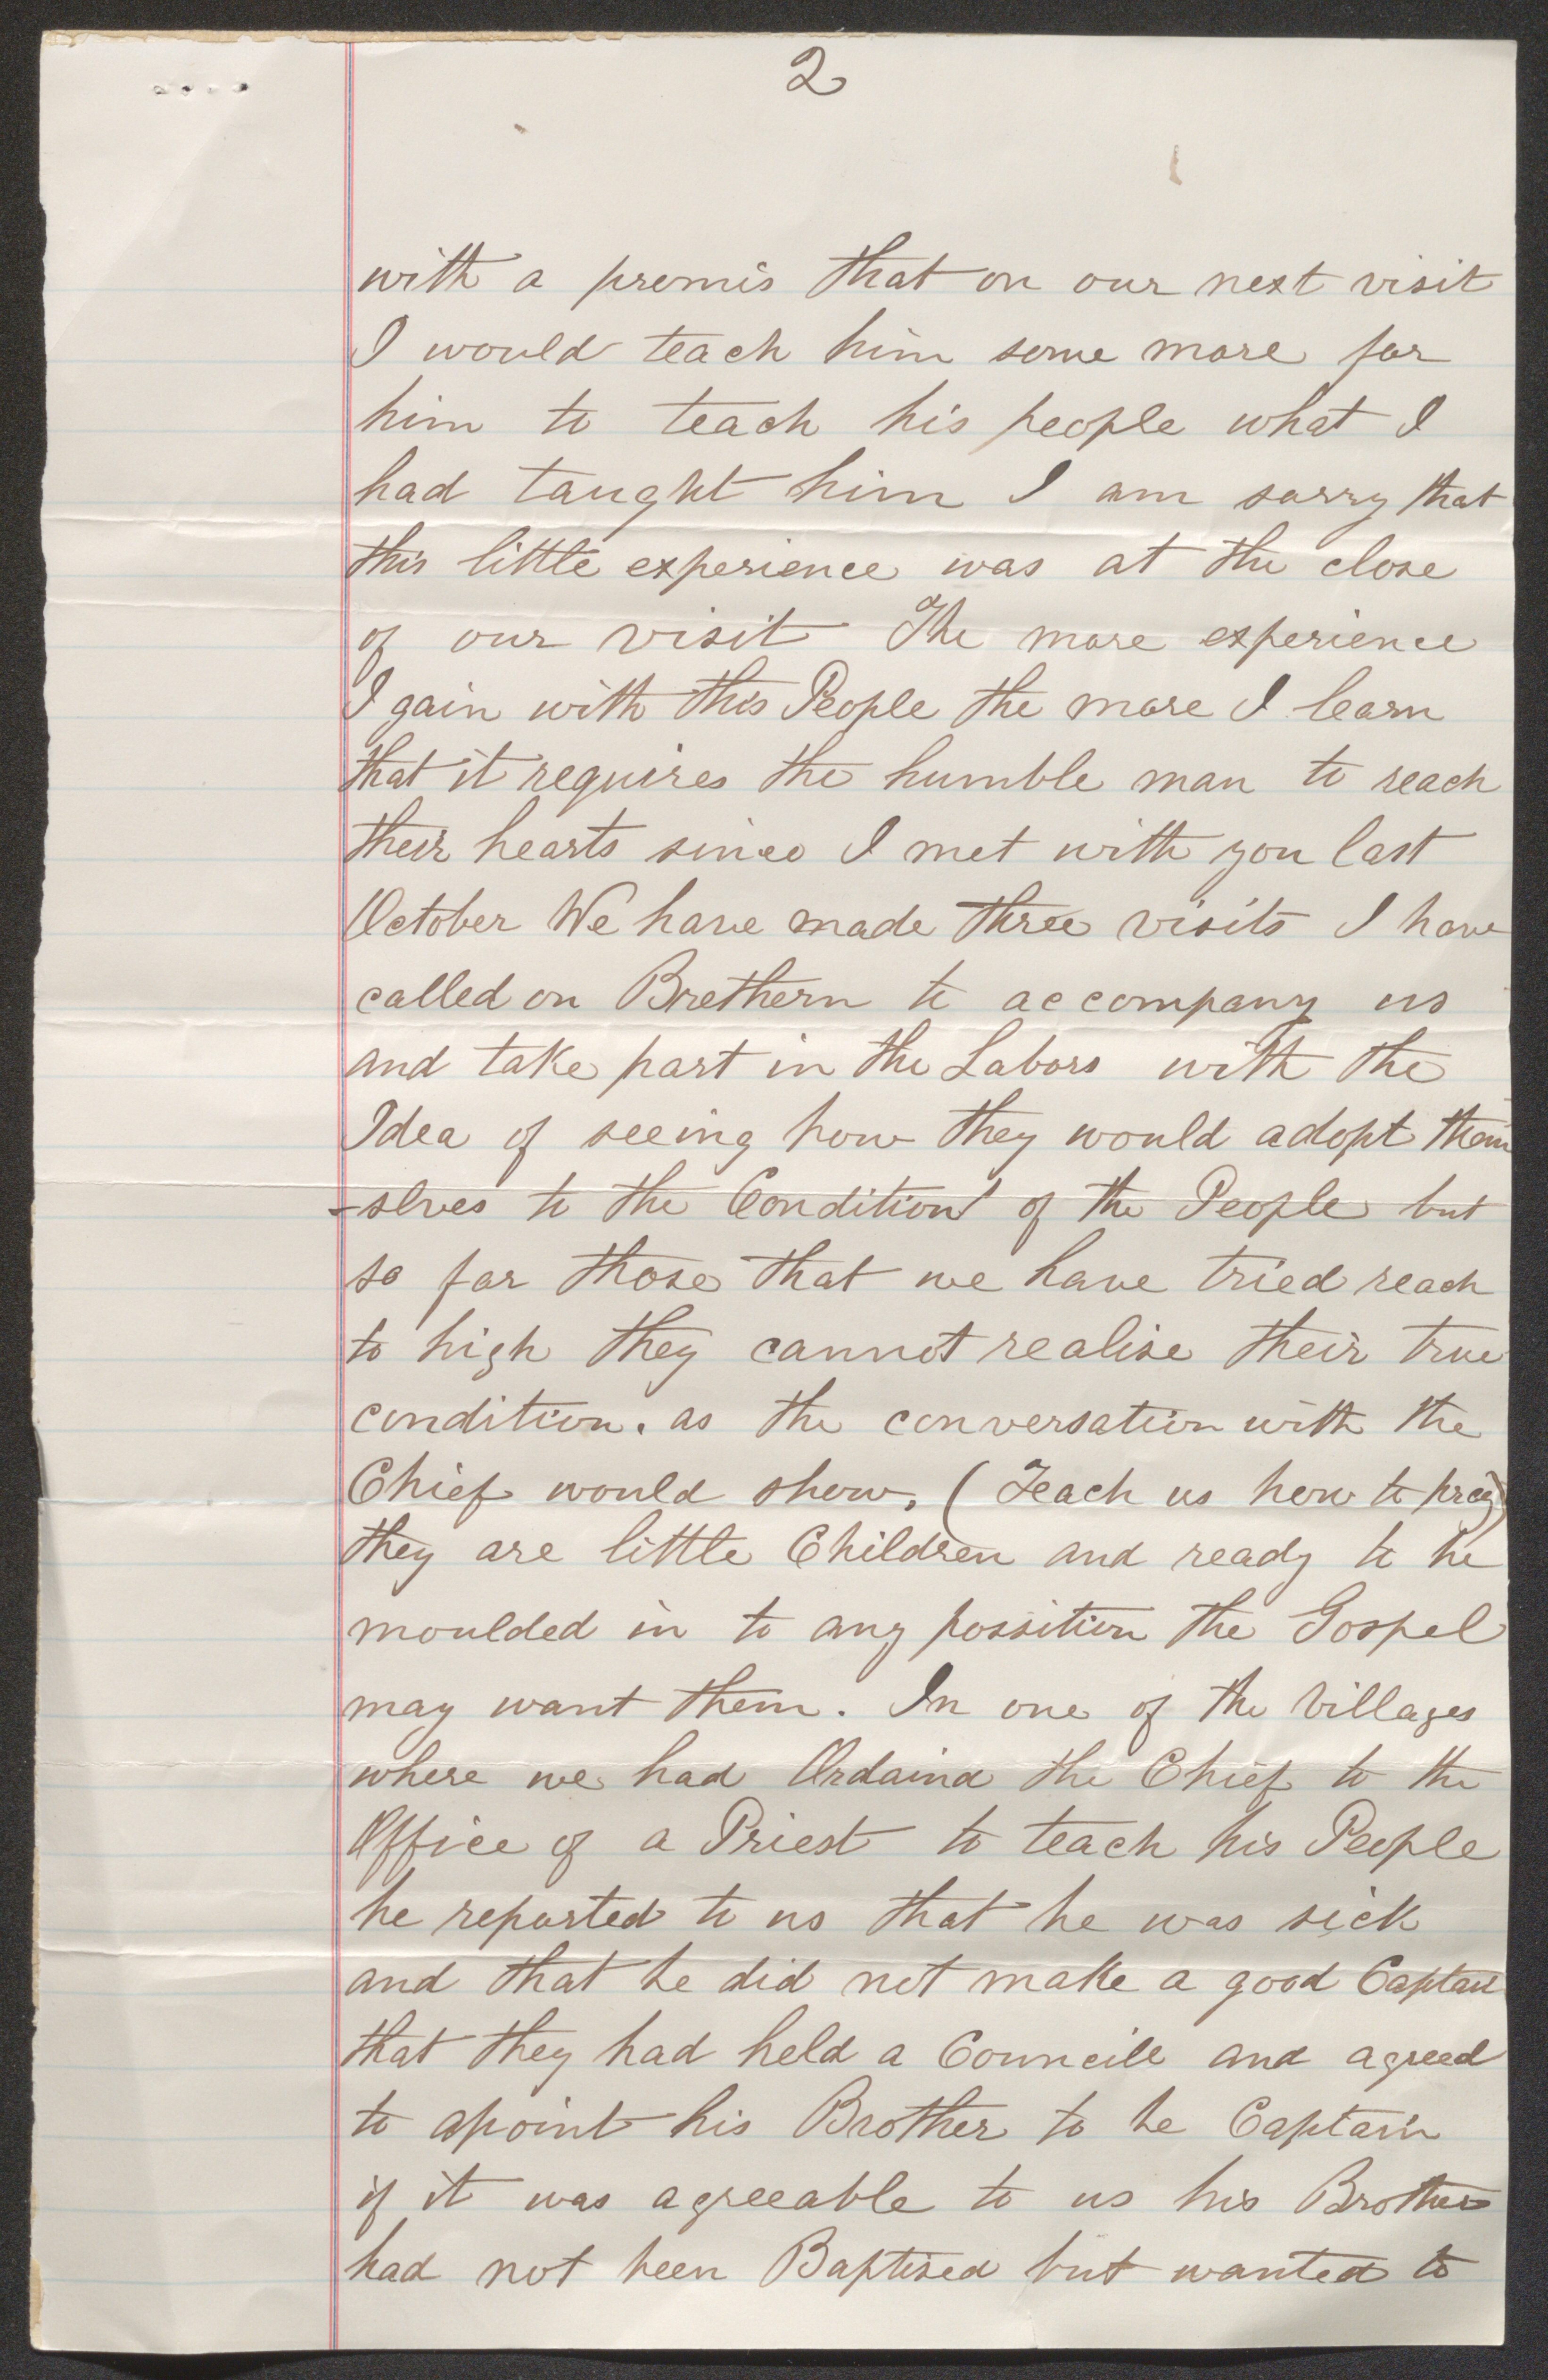 2
with a promis that on our next visit
I would teach him some more for
him to teach his people what I
had taught him I am sorry that
this little experience was at the close
of our visit The more experience
I gain with this People the more I learn
that it requires the humble man to reach
their hearts since I met with you last
October We have made three visits I have
called on Brethern to accompany us
and take part in the Labors with the
Idea of seeing how they would adopt them
-slves to the Condition of the People but
so far those that we have tried reach
to high they cannot realise their true
condition. as the conversation with the
Chief would show. (Teach us how to pray)
they are little Children and ready to be
moulded in to any possition the Gospel
may want them. In one of the Villages
where we had Ordaind the Chief to the
Office of a Priest to teach his People
he reported to us that he was sick
and that he did not make a good Captain
that they had held a Councill and agreed
to apoint his Brother to be Captain
if it was agreeable to us his Brother
had not been Baptised but wanted to